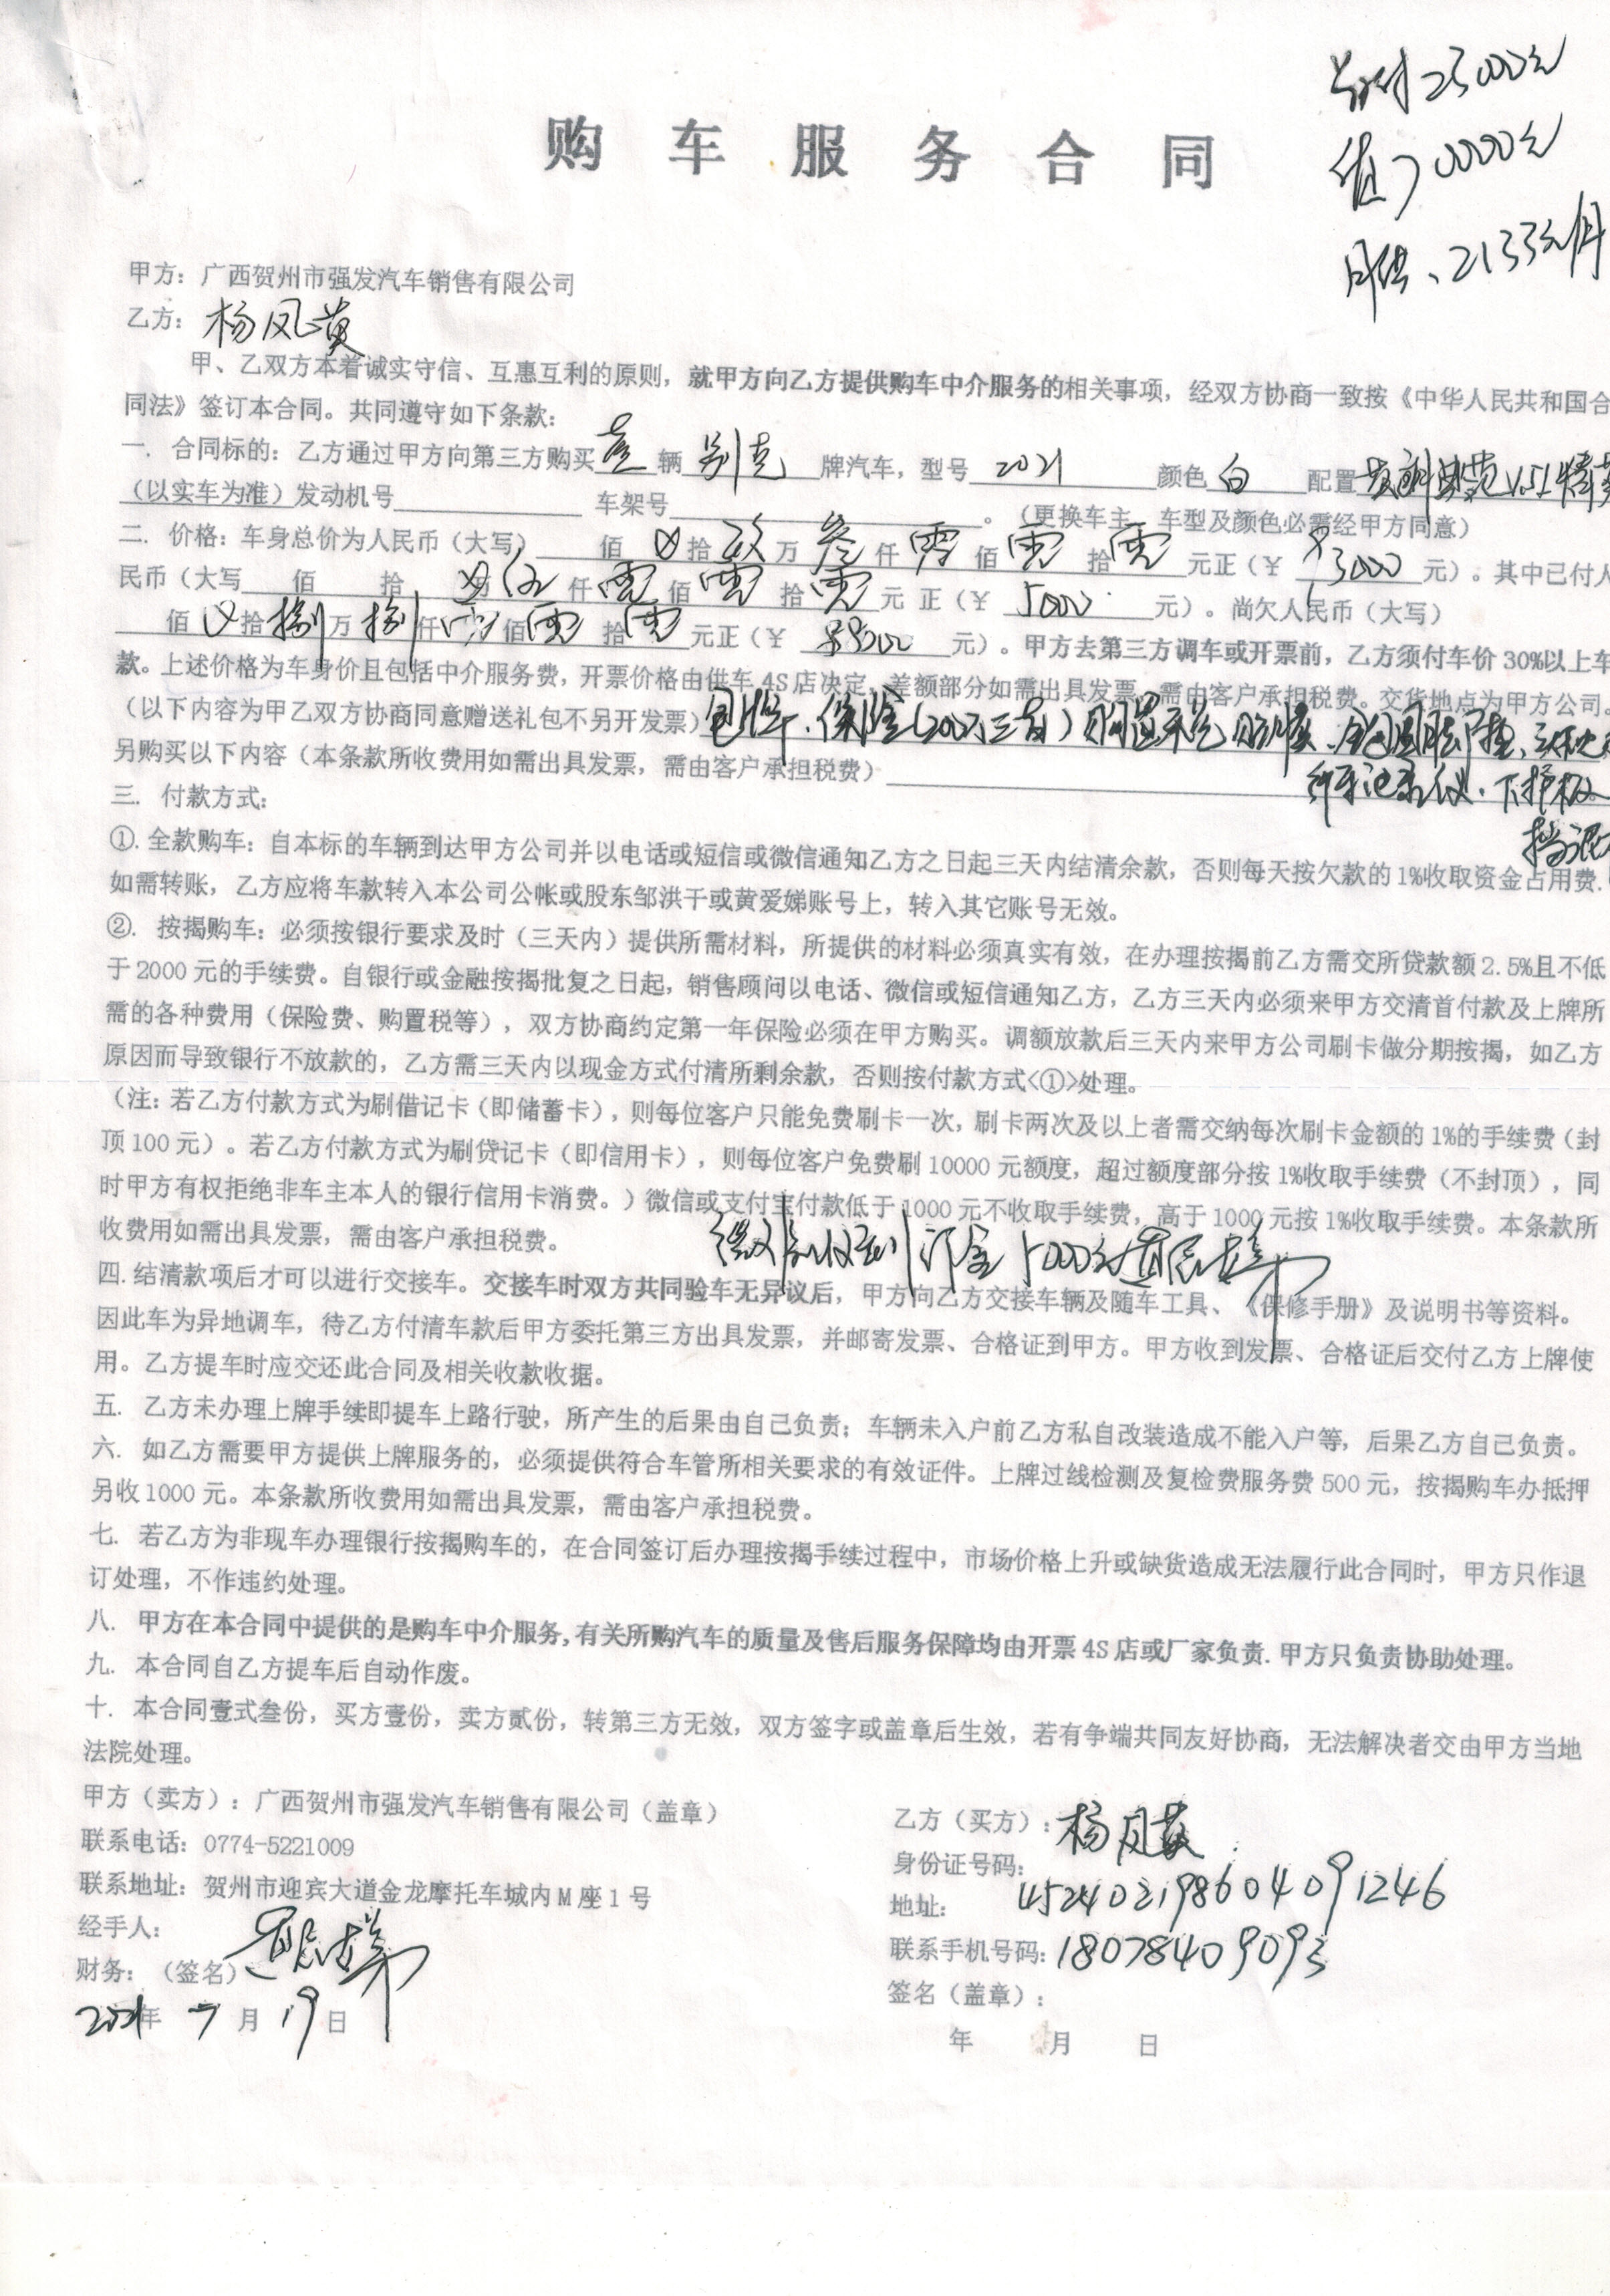 首付25000元
贷70000元
月供、2133元/月
购车服务合同
甲方：广西贺州市强发汽车销售有限公司
乙方：杨凤黄
甲、乙双方本着诚实守信、互惠互利的原则，就甲方向乙方提供购车中介服务的相关事项，经双方协商一致按《中华人民共和国合
同法》签订本合同。共同遵守如下条款：
一．合同标的：乙方通过甲方向第三方购买壹辆别克牌汽车，型号2021颜色白配置
（以实车为准）发动机号 车架号 。（更换车主、车型及颜色必需经甲方同意）
二．价格：车身总价为人民币（大写）佰 拾玖万叁仟零佰零拾零元正（¥93000元）。其中已付人
民币（大写 佰 拾 万伍仟零佰零拾零元正（¥5000元）。尚欠人民币（大写）
佰 拾捌万捌仟零佰零拾零元正（¥88000元）。甲方去第三方调车或开票前，乙方须付车价30%以上车
款。上述价格为车身价且包括中介服务费，开票价格由供车4S店决定，差额部分如需出具发票，需由客户承担税费。交货地点为甲方公司。
（以下内容为甲乙双方协商同意赠送礼包不另开发票）包牌、保险(200万三者)、全包围脚垫、
行车记录仪、下护板
另购买以下内容（本条款所收费用如需出具发票，需由客户承担税费）
三．付款方式：
①．全款购车：自本标的车辆到达甲方公司并以电话或短信或微信通知乙方之日起三天内结清余款，否则每天按欠款的1%收取资金占用费．
如需转账，乙方应将车款转入本公司公帐或股东邹洪干或黄爱娣账号上，转入其它账号无效。
②．按揭购车：必须按银行要求及时（三天内）提供所需材料，所提供的材料必须真实有效，在办理按揭前乙方需交所贷款额2.5%且不低
于2000元的手续费。自银行或金融按揭批复之日起，销售顾问以电话、微信或短信通知乙方，乙方三天内必须来甲方交清首付款及上牌所
需的各种费用（保险费、购置税等），双方协商约定第一年保险必须在甲方购买。调额放款后三天内来甲方公司刷卡做分期按揭，如乙方
原因而导致银行不放款的，乙方需三天内以现金方式付清所剩余款，否则按付款方式<①>处理。
（注：若乙方付款方式为刷借记卡（即储蓄卡），则每位客户只能免费刷卡一次，刷卡两次及以上者需交纳每次刷卡金额的1%的手续费（封
顶100元）。若乙方付款方式为刷贷记卡（即信用卡），则每位客户免费刷10000元额度，超过额度部分按1%收取手续费（不封顶），同
时甲方有权拒绝非车主本人的银行信用卡消费。）微信或支付宝付款低于1000元不收取手续费，高于1000元按1%收取手续费。本条款所
收费用如需出具发票，需由客户承担税费。
收到订金5000元
四．结清款项后才可以进行交接车。交接车时双方共同验车无异议后，甲方向乙方交接车辆及随车工具、《保修手册》及说明书等资料。
因此车为异地调车，待乙方付清车款后甲方委托第三方出具发票，并邮寄发票、合格证到甲方。甲方收到发票、合格证后交付乙方上牌使
用。乙方提车时应交还此合同及相关收款收据。
五．乙方未办理上牌手续即提车上路行驶，所产生的后果由自己负责；车辆未入户前乙方私自改装造成不能入户等，后果乙方自己负责。
六．如乙方需要甲方提供上牌服务的，必须提供符合车管所相关要求的有效证件。上牌过线检测及复检费服务费500元，按揭购车办抵押
另收1000元。本条款所收费用如需出具发票，需由客户承担税费。
七．若乙方为非现车办理银行按揭购车的，在合同签订后办理按揭手续过程中，市场价格上升或缺货造成无法履行此合同时，甲方只作退
订处理，不作违约处理。
八．甲方在本合同中提供的是购车中介服务,有关所购汽车的质量及售后服务保障均由开票4S店或厂家负责.甲方只负责协助处理。
九．本合同自乙方提车后自动作废。
十．本合同壹式叁份，买方壹份，卖方贰份，转第三方无效，双方签字或盖章后生效，若有争端共同友好协商，无法解决者交由甲方当地
法院处理。
甲方（卖方）：广西贺州市强发汽车销售有限公司（盖章）
联系电话：0774-5221009
联系地址：贺州市迎宾大道金龙摩托车城内M座1号
经手人：
财务：（签名）
2021年7月19日
乙方（买方）：杨凤黄
身份证号码：452402198604091246
地址：
联系手机号码：18078409093
签名（盖章）：
年 月 日